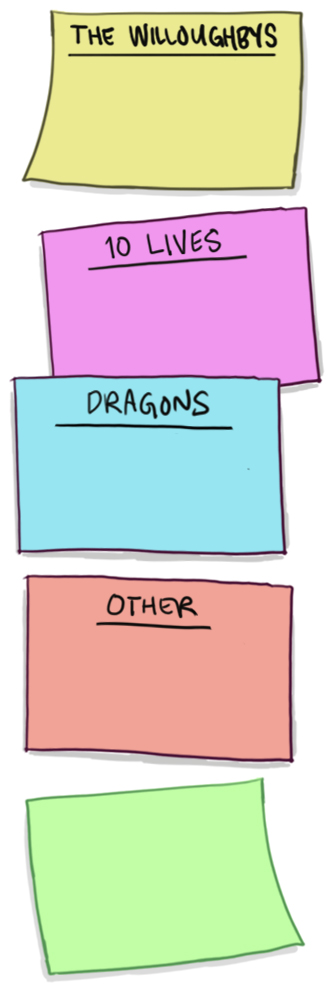 THE WILLOUGHBYS
10 LIVES
DRAGONS
OTHER